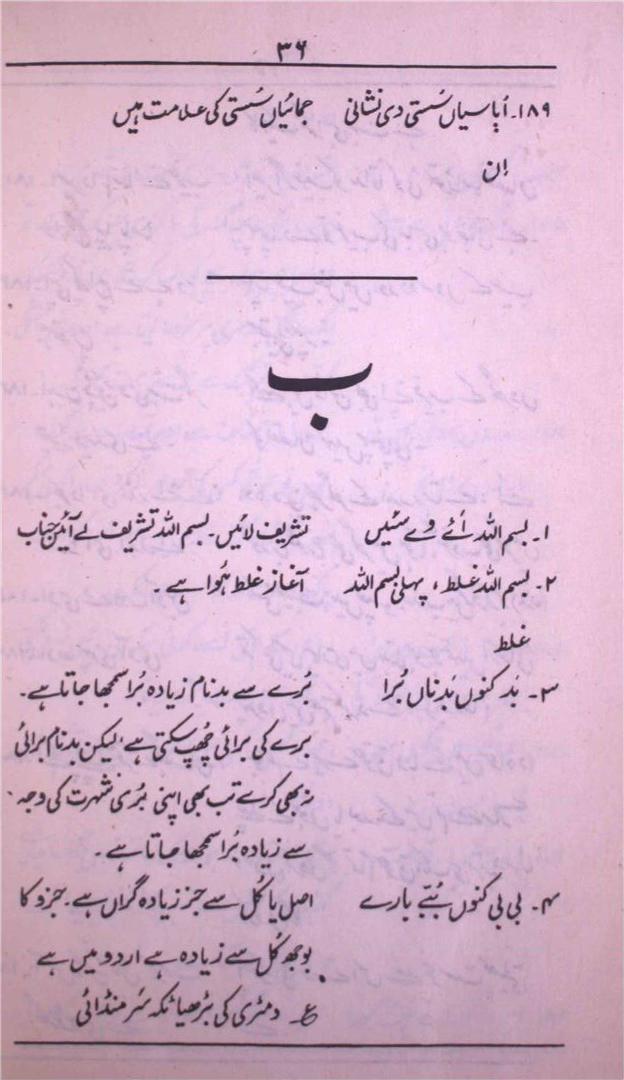 ۳۶
۱۸۹۔ اُباسیاں سُستی دی نشانی جمائیاں سُستی کی علامت ہیں
اِن
ب
۱۔ بسم اللہ اُے وے سئیں تشریف لائیں۔ بسم اللہ تشریف لے آئیں جناب
۲۔ بسم اللہ غلط، پہلی بسم اللہ آغاز غلط ہُوا ہے۔
غلط
۳۔ بَد کنوں بَدناں بُرا بُرے سے بدنام زیادہ بُرا سمجھا جاتا ہے۔
برے کی برائی چُھپ سکتی ہے، لیکن بدنام برائی
نہ بھی کرے تب بھی اپنی بُری شہرت کی وجہ
سے زیادہ بُرا سمجھا جاتا ہے۔
۴۔ بی بی کنوں بُتے بارے اصل یا کل سے جز زیادہ گراں ہے۔ جزو کا
بوجھ کُل سے زیادہ ہے اردو میں ہے
ع۔ دمڑی کی بڑھیا ٹکہ سَر منڈائی